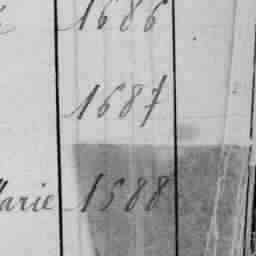 1686
1687
Marie 1588